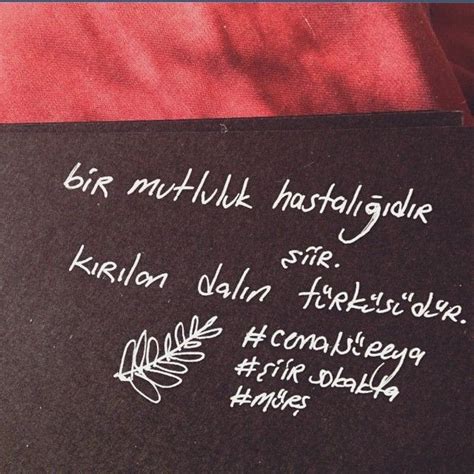 bir mutluluk hastalığıdır
şiir.
kırılan dalın türküsüdür.
#cemalsüreya
#şiirsokakta
#mürş